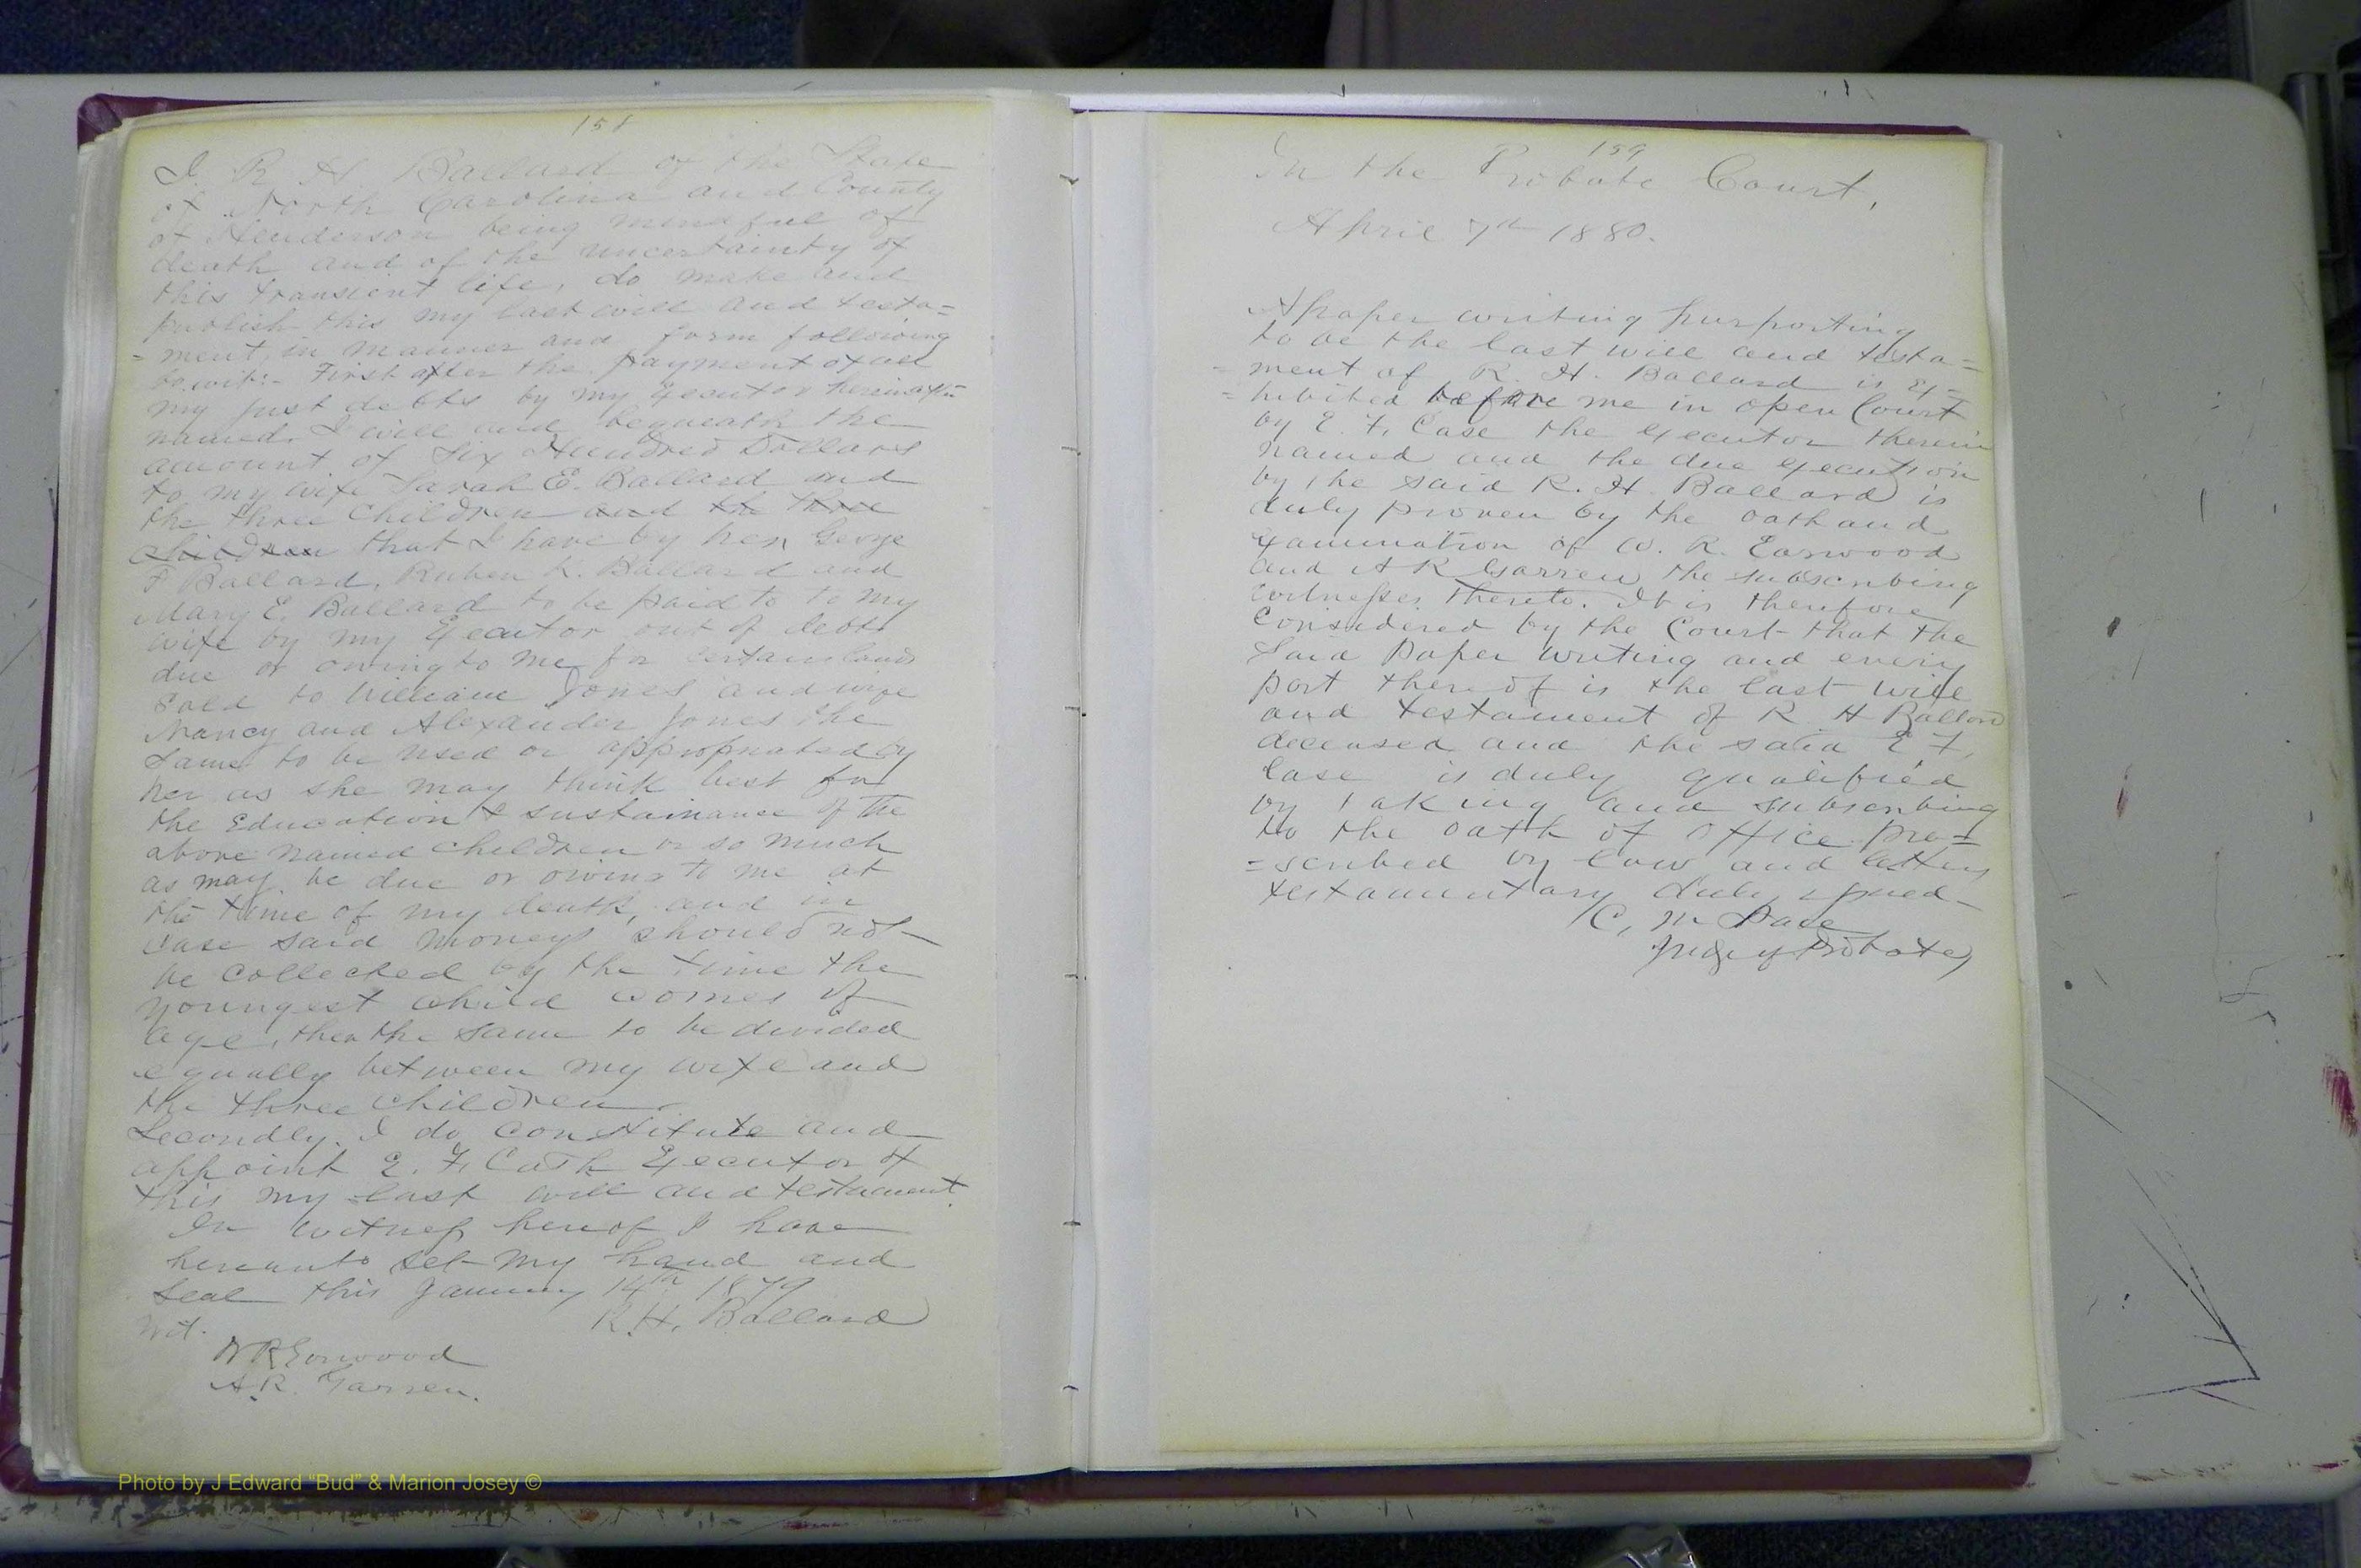 158
I. R H Ballard of the State
of North Carolina and County
of Henderson being mindful of
death and of the uncertainty of
this transient life, do make and
publish this my last will and testa=
=ment, in manner and form following
to wit:- First after the payment of all
my just debts by my Executor hereinafter
named. I will and bequeath the
amount of Six Hundred Dollars
to my wife Sarah E. Ballard and
the three Children and the three
Children that I have by her, George
F Ballard, Ruben L. Ballard and
Mary E. Ballard to be paid to to my
wife by my Executor out of debts
due or owing to me for certain lands
Sold to William Jones and wife
Nancy and Alexander Jones the
Same to be used or appropriated by
her as she may think best for
the Education & sustainance of the
above named children or so much
as may be due or owing to me at
the time of my death, and in
case said moneys should not
be collected by the time the
youngest child comes of
age, then the same to be divided
equally between my wife and
the three children.
Secondly. I do constitute and
appoint E. F. Case Executor of
this my last will and testament.
In witness hereof I have
hereunto set my hand and
seal this January 14th 1879
R.H. Ballard
Wit.
W R Earwood
A.R. Garren.
159
In the Probate Court,
April 7th 1880.
A paper writing purporting
to be the last will and testa=
=ment of R. H. Ballard is Ex=
=hibited before me in open Court
by E. F. Case the Executor therein
named and the due execution
by the said R. H. Ballard is
duly proven by the oath and
Examination of W. R. Earwood
and A R Garren the subscribing
witnesses thereto. It is therefore
Considered by the Court that the
Said paper writing and every
part thereof is the last will
and testament of R H Ballard
deceased and the said E F,
Case is duly qualified
by taking and subscribing
to the oath of office pre=
=scribed by law and letters
testamentary duly issued
C, M Pace
Judge of Probate,
Photo by J Edward “Bud” & Marion Josey ©